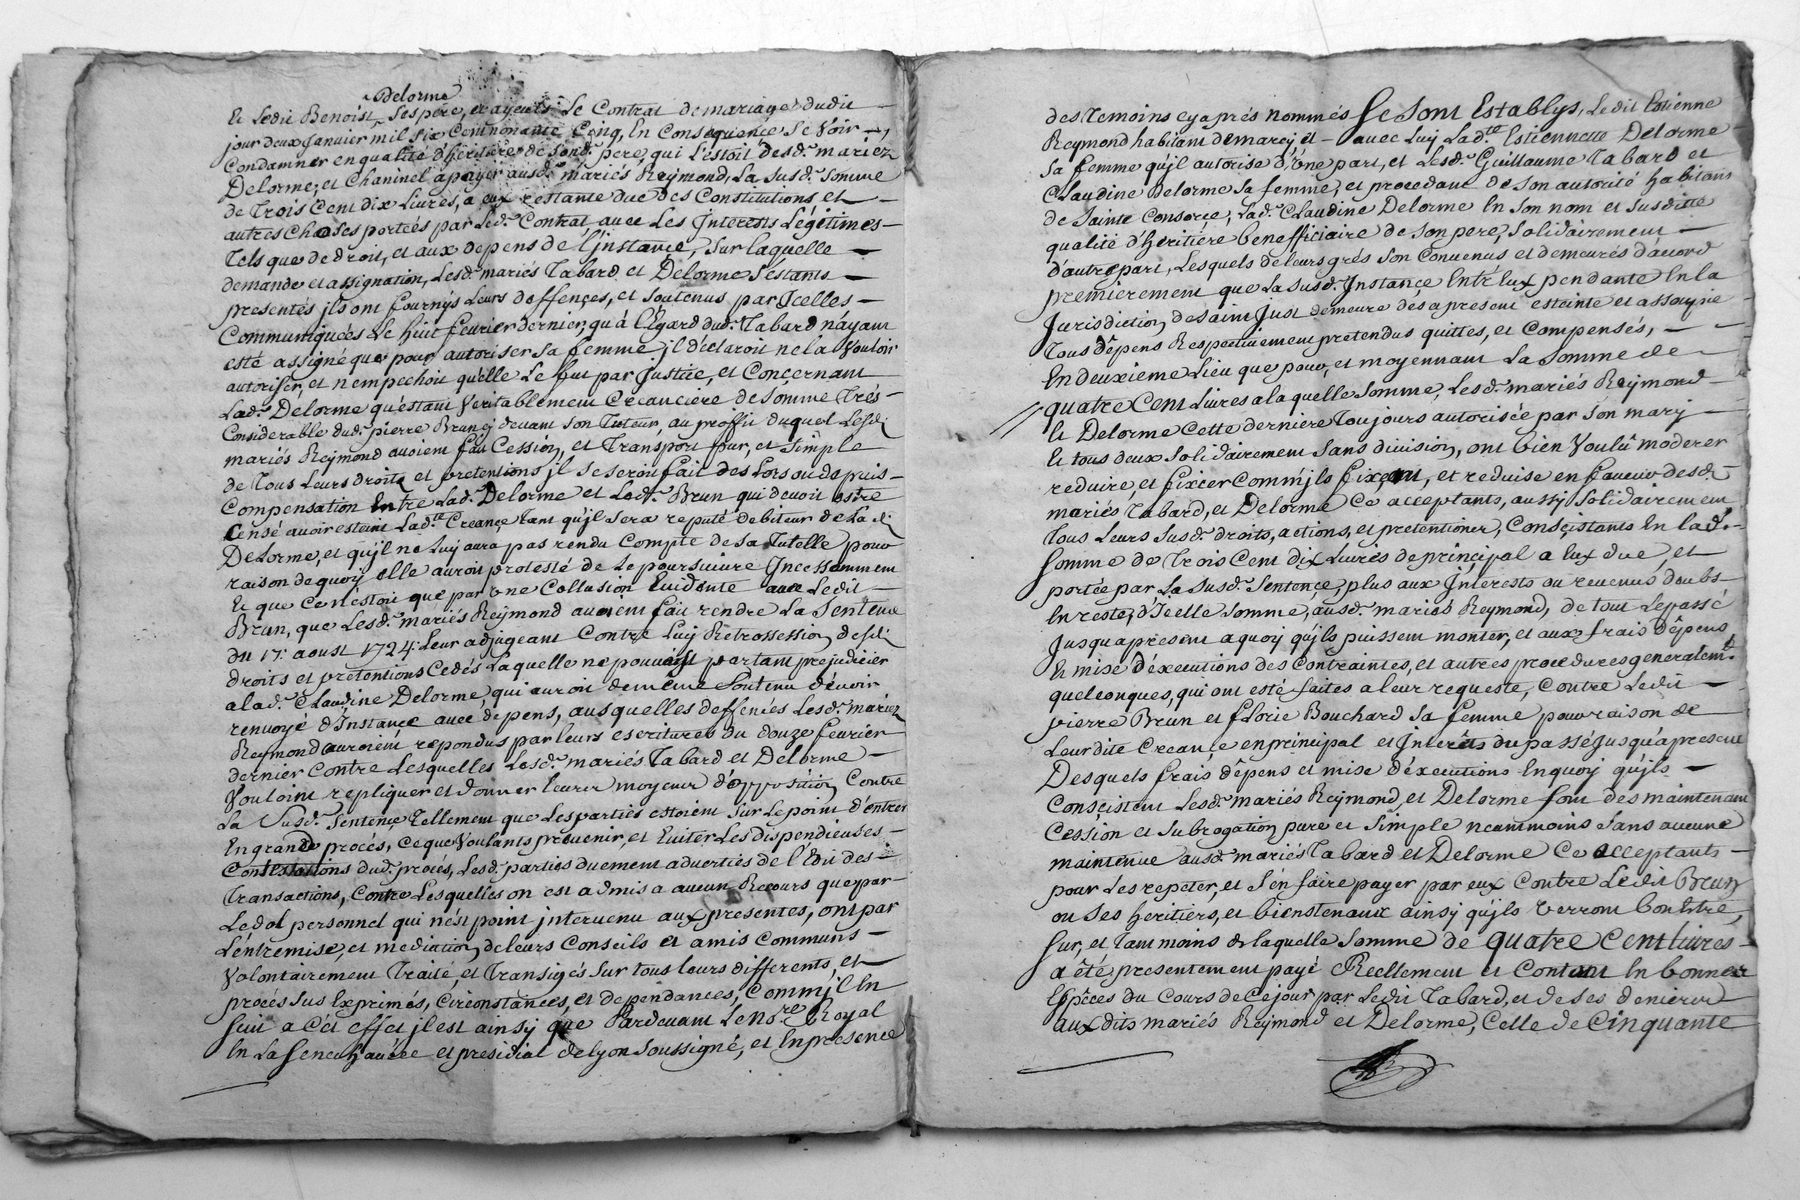 Delorme
Et Ledit Benoist, Ses pere, et ayeuls Le Contrat de mariage dudit
jour deux Janvier mil six Cent nonante Cinq, En Consequence Se Voir
Condamner en qualité d'heritiere de Sond. pere, qui L'estoit desd. mariez
Delorme, et Chaninel a payer ausd. mariés Reymond, La susd. Somme
de Trois Cent dix Livres, a eux restante due des Constitutions, et
autres Choses portées par Led. Contrat avec Les Interests Légitimes
Tels que de droit, et aux depens de L'instance, Sur laquelle
demande et assignation, Lesd. mariés Tabard et Delorme S'estants
presentés ils ont fournÿs Leurs deffençes, et Soutenus par Jcelles
Communiquées Le huit fevrier dernier, qu'à L'Egard dud. Tabard n'ayant
esté assigné que pour autoriser Sa femme il déclaroit ne la Vouloir
autoriser, et n'empechoit qu'elle Le fut par Justice, et Conçernant
Lad. Delorme qu'estant Veritablement Creanciere de Somme Trés
Considerable dud. pierre Brun cy devant Son Tuteur, au proffit duquel Lesd.
mariés Reymond avoient fait Cession, et Transport pur, et Simple
de Tous Leurs droits et pretentions il Se Seroit fait des Lors ou depuis
Compensation Entre Lad. Delorme et Led. Brun qui devoit estre
Censé avoir esteint Lad.te Creance Tant qu'il Sera reputé debiteur de La d.
Delorme, et qu'il ne Luy aura pas rendu Compte de Sa Tutelle pour
raison de quoÿ elle auroit protesté de Le poursuivre Jncessamment
Et que Ce n'estoit que par Une Collusion Evidente avec Ledit
Brun, que Lesd. mariés Reÿmond avoient fait rendre La Sentence
du 17. aoust 1724. Leur adjugeant Contre Luy Retrossession desd.
droits et pretentions Cedés Laquelle ne pouvoit partant prejudicier
a lad. Claudine Delorme, qui auroit de même Soutenu d'avoir
renvoyé d'Instance avec depens, ausquelles deffences Lesd. mariez
Reÿmond auroient repondus par leurs escritures du douze fevrier
dernier Contre Lesquelles Lesd. mariés Tabard et Delorme
Vouloint repliquer et donner leurs moyens d'opposition Contre
La Susd. Sentençe Tellement que Les parties estoient Sur Le point d'entrer
En grande procés, Ce que Voulants prevenir, et Eviter Les dispendieuses
Contestations dud. procés, Lesd. parties duement adverties de L'Edit des
Transactions, Contre Lesquelles on est admis a aucun Recours que par
Le dol personnel qui n'est point intervenu aux presentes, ont par
L'entremise, et mediation de leurs Conseils et amis Communs
Volontairement Traité, et Transigés Sur tous leurs differents, et
procés Sus Exprimés, Circonstances, et dependances, Comm'il En
Suit a Cét effet il est ainsÿ que Pardevant Le No.re Royal
En La Senechaucée et presidial de Lyon Soussigné, et En presence
des Temoins cy aprés nommés Se Sont Establys, Ledit Estienne
Reymond habitant de marcy, Et avec Luÿ Lad.te Estiennette Delorme
Sa femme qu'il autorise d'Une part, et Lesd. Guillaume Tabard et
Claudine Delorme Sa femme, et procedant de Son autorité habitans
de Sainte Consorçe, Lad. Claudine Delorme En Son nom et Susditte
qualité d'heritiere benefficiaire de Son pere, Solidairement
d'autre part, Lesquels de leurs grés Son Convenus et demeurés d'acord
premierement que La susd. Instance Entr'Eux pendante En La
Jurisdiction de Saint Just demeure dés a present esteinte et assoupie
Tous dépens Respectivement pretendus quittes, et Compensés,
En deuxieme Lieu que pour, et moyennant La Somme de
quatre Cent Livres a laquelle Somme, Lesd. mariés Reymond
Et Delorme Cette derniere Toujours autorisée par Son mary
Et tous deux Solidairement Sans division, ont bien Voulû moderer
reduire, et fixer Comm'ils fixent, et reduise en faveur desd.
mariés Tabard, et Delorme Ce acceptants, aussÿ Solidairement
Tous Leurs Susd. droits, actions, et pretentions, Consçistants En lad.
Somme de Trois Cent dix Livres de principal a Eux due, et
portée par La Susd. Sentence, plus aux Jnterests ou revenus doubs
En reste, d'Jcelle Somme, ausd. mariés Reymond, de tout Le passé
Jusqu'a present a quoy qu'ils puissent monter, et aux frais dépens
Et mise d'éxecutions des Contraintes, et autres procedures generalem.t
quelconques, qui ont esté faites a leur requeste, Contre Ledit
pierre Brun et Florie Bouchard Sa femme pour raison de
Leur dite Creance en principal et Interêts du passé Jusqu'a present
Desquels frais dépens et mise d'éxecutions En quoÿ qu'ils
Consçistent Lesd. mariés Reÿmond, et Delorme font des maintenant
Cession et Subrogation pure et Simple neammoins Sans aucune
maintenue ausd. mariés Tabard et Delorme Ce acceptants
pour Les repeter, et S'en faire payer par eux Contre Ledit Brun
ou Ses heritiers, et bienstenants ainsÿ qu'ils Verront bon Estre,
Sur, et Tant moins de laquelle Somme de quatre Cent Livres
a été presentement payé Réellement et Contant En bonnes
Espêces du Cours de Ce jour par Ledit Tabard, et de Ses deniers
aux dits mariés Reÿmond et Delorme, Celle de Cinquante